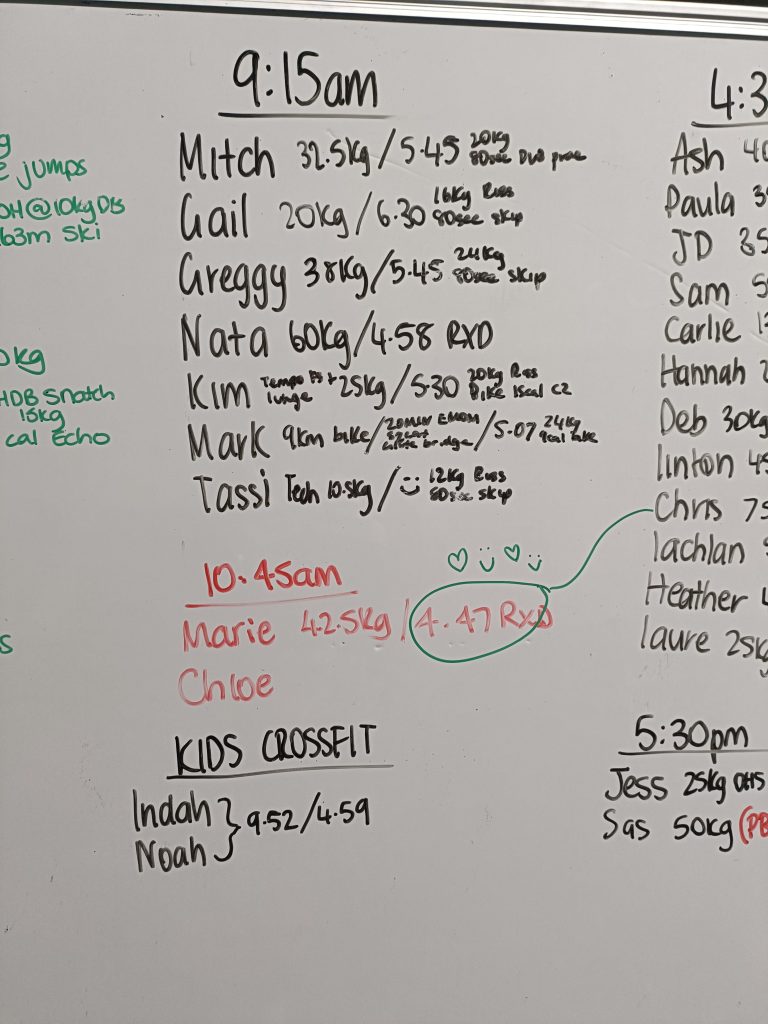 9:15am
Mitch 32.5kg/5.45 20kg 80sec
Gail 20kg/6.30 16kg Russ 80sec skip
Greggy 38kg/5.45 24kg 80sec skip
Nata 60kg/4.58 RXD
Kim Tempo FS + lunge 25kg/5.30 20kg Russ Bike 15cal C2
Mark 9km bike/20min EMOM glute bridge/5.07 24kg 9cal bike
Tassi Tech 10.5kg/ 12kg Russ 80sec skip
10.45am
Marie 42.5kg/4.47 RXD
Chloe
KIDS CROSSFIT
Indah } 9.52/4.59
Noah
g
e jumps
OH@10kgDBs
63m Ski
0kg
HDB Snatch
15kg
cal Echo
s
4:3
Ash 40
Paula 3
JD 35
Sam 5
Carlie 1
Hannah 2
Deb 30kg
linton 4
Chris 75
lachlan
Heather 4
laure 25kg
5:30pm
Jess 25kg OHS
Sas 50kg (PB